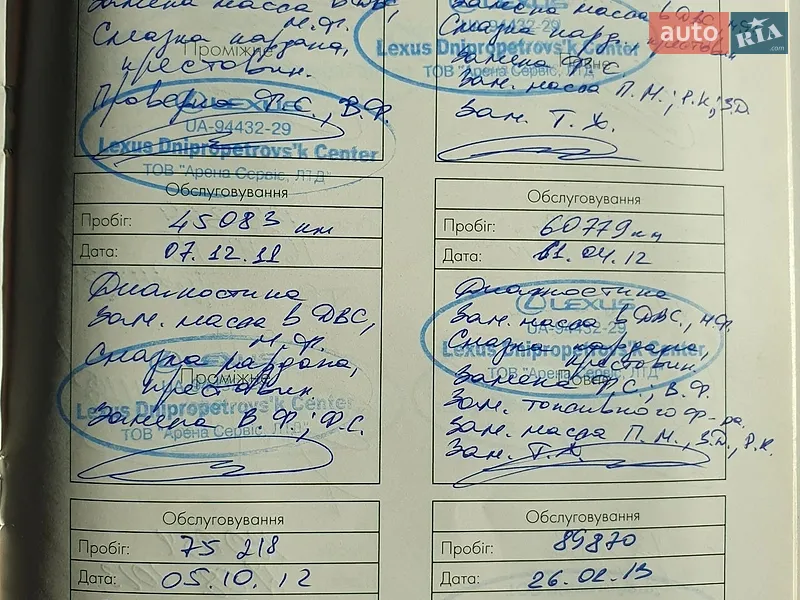 Замена масла в ДВС,
м.ф.
Смазка кардана,
Проміжне
крестовин.
Проверка Ф.С., В.Ф.
LEXUS
UA-94432-29
Lexus Dnipropetrovs'k Center
ТОВ "Арена Сервіс, ЛТД"
Замена масла в ДВС, м.ф.
UA-94432-29
Смазка кард., крестовин
Lexus Dnipropetrovs'k Center
Замена Ф.С.
ТОВ "Арена Сервіс, ЛТД"
Зам. масла П.М.; Р.К.; З.Д.
Зам. Т.Ж.
auto RIA
.com
Обслуговування
Пробіг: 45083 км
Дата: 07.12.11
Диагностика
Зам. масла в ДВС,
м.ф.
Смазка кардана,
Проміжне
крестовин
Lexus Dnipropetrovs'k Center
Замена В.Ф.; Ф.С.
ТОВ "Арена Сервіс, ЛТД"
Обслуговування
Пробіг: 60779 км
Дата: 11.04.12
Диагностика
LEXUS
Зам. масла в ДВС., м.ф.
UA-94432-29
Смазка кардана,
Lexus Dnipropetrovs'k Center
крестовин
ТОВ "Арена Сервіс, ЛТД"
Замена Ф.С., В.Ф.
Зам. топливного ф-ра.
Зам. масла П.М., З.Д., Р.К.
Зам. Т.Ж.
Обслуговування
Пробіг: 75 218
Дата: 05.10.12
Обслуговування
Пробіг: 89870
Дата: 26.02.13